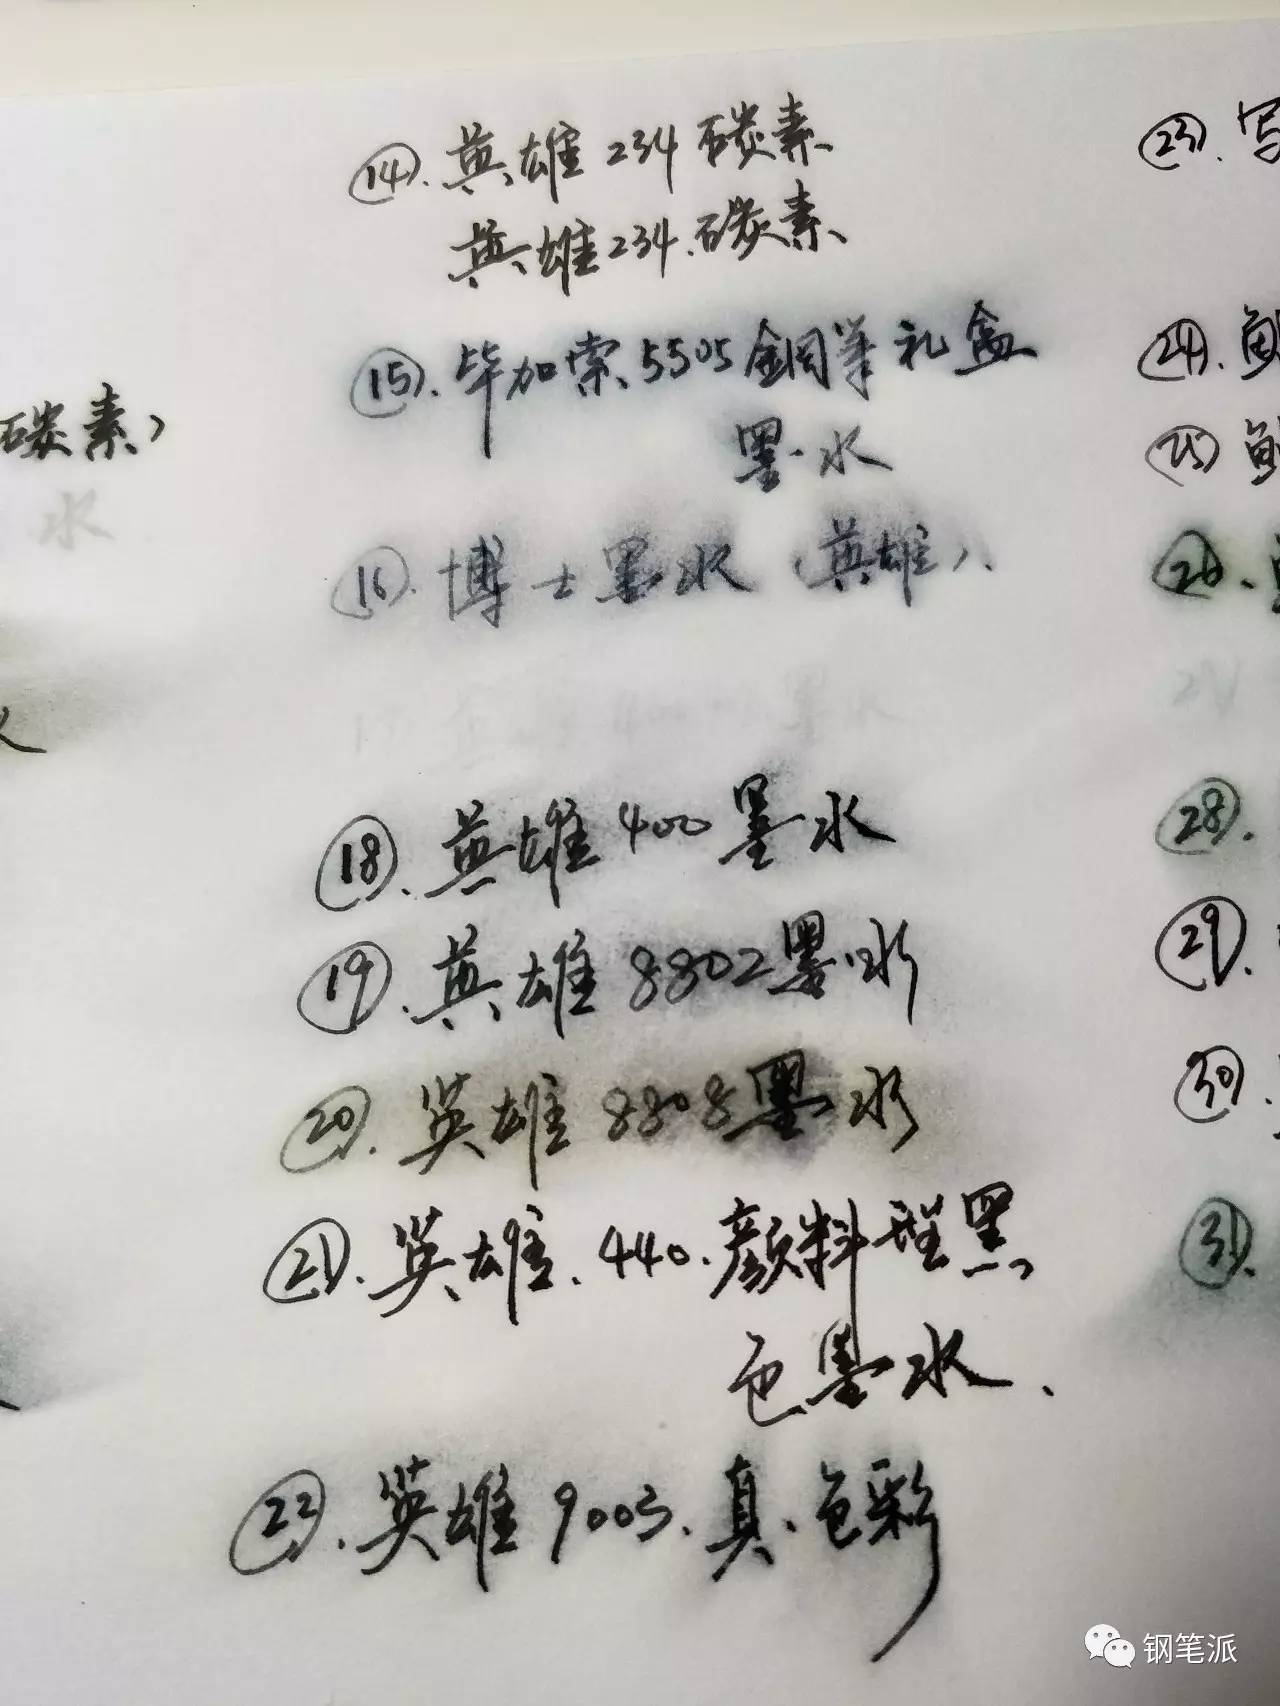 碳素）
水
⑭.英雄234碳素
英雄234.碳素
⑮.毕加索.5505鋼筆礼盒
墨水
⑯.博士墨水（英雄）.
⑱.英雄400墨水
⑲.英雄8802墨水
⑳.英雄8808墨水
㉑.英雄.440.颜料型黑
色墨水.
㉒.英雄9003.真.色彩
㉓.写
㉔.
㉕
㉖.
㉘.
㉙.
㉚.
㉛.
钢笔派